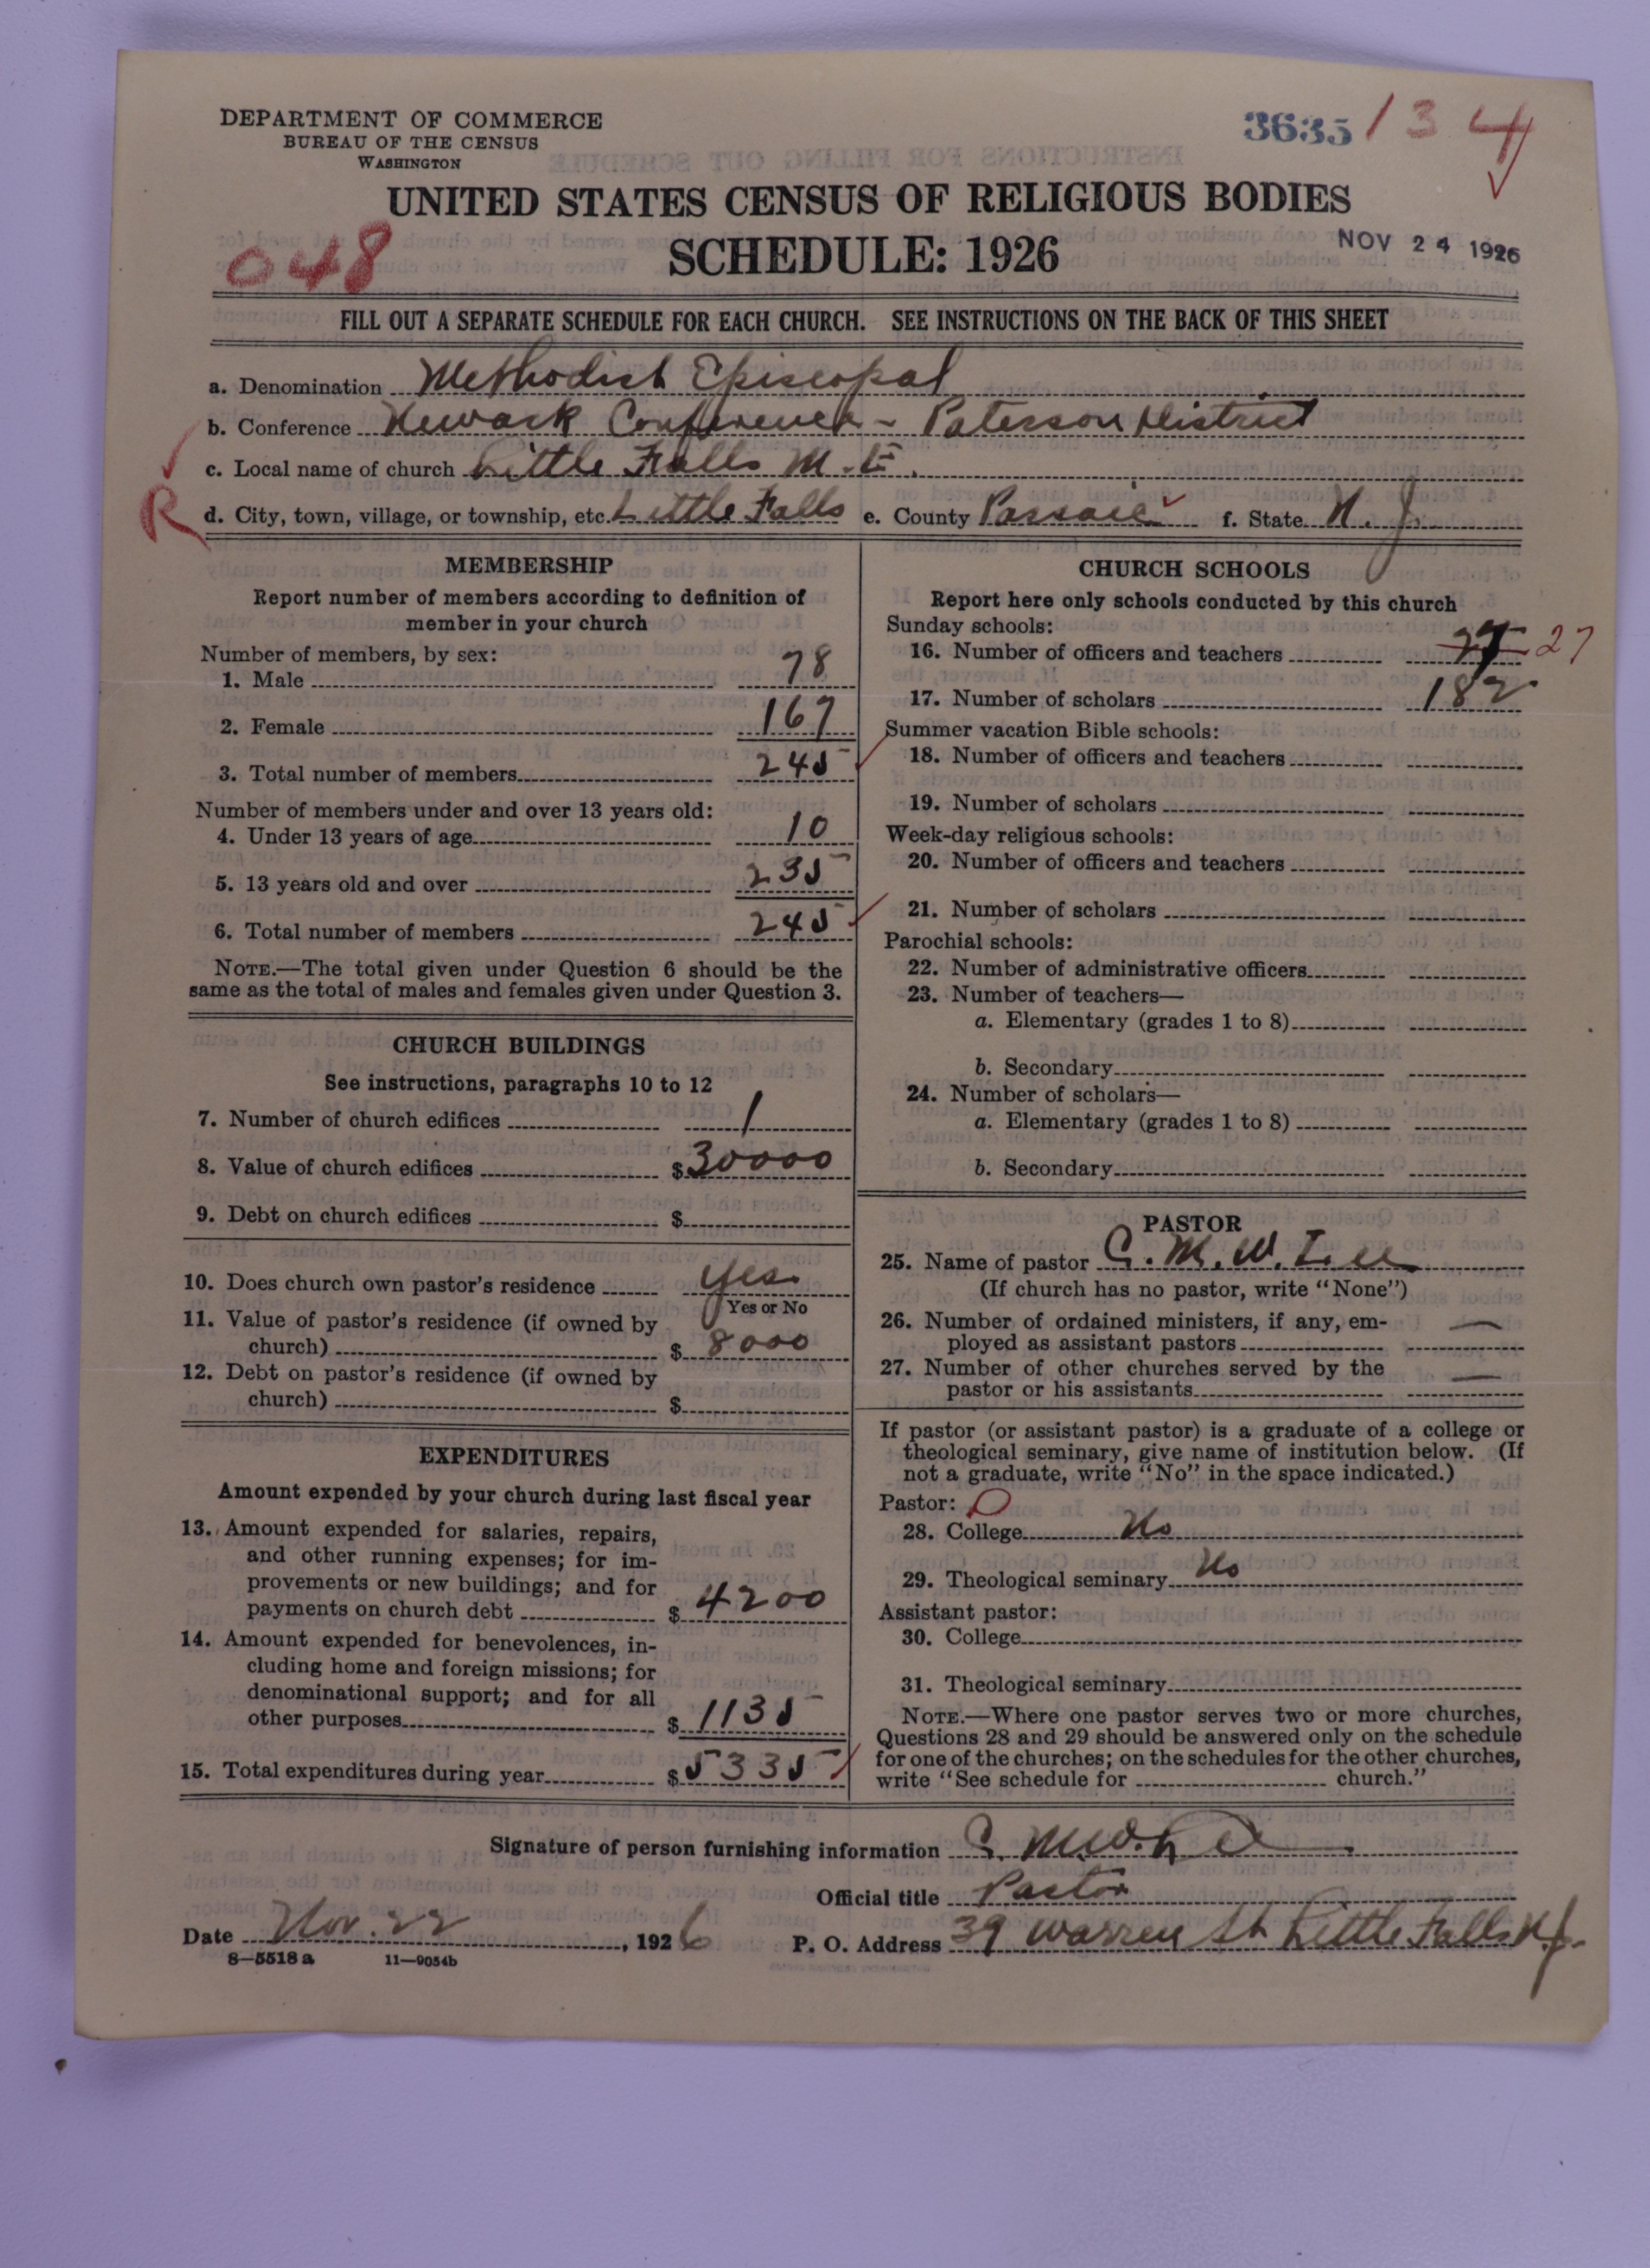 DEPARTMENT OF COMMERCE
BUREAU OF THE CENSUS
WASHINGTON
3635 134
UNITED STATES CENSUS OF RELIGIOUS BODIES
SCHEDULE: 1926
NOV 24 1926
048
FILL OUT A SEPARATE SCHEDULE FOR EACH CHURCH. SEE INSTRUCTIONS ON THE BACK OF THIS SHEET
a. Denomination Methodist Episcopal
b. Conference Newark Conference - Paterson District
c. Local name of church Little Falls M.E.
R
d. City, town, village, or township, etc. Little Falls e. County Passaic f. State N.J.
MEMBERSHIP
Report number of members according to definition of
member in your church
Number of members, by sex:
1. Male 78
2. Female 167
3. Total number of members 245
Number of members under and over 13 years old:
4. Under 13 years of age 10
5. 13 years old and over 235
6. Total number of members 245
NOTE.—The total given under Question 6 should be the
same as the total of males and females given under Question 3.
CHURCH BUILDINGS
See instructions, paragraphs 10 to 12
7. Number of church edifices 1
8. Value of church edifices $30000
9. Debt on church edifices $
10. Does church own pastor's residence Yes.
Yes or No
11. Value of pastor's residence (if owned by
church) $ 8000
12. Debt on pastor's residence (if owned by
church) $
EXPENDITURES
Amount expended by your church during last fiscal year
13. Amount expended for salaries, repairs,
and other running expenses; for im-
provements or new buildings; and for
payments on church debt $ 4200
14. Amount expended for benevolences, in-
cluding home and foreign missions; for
denominational support; and for all
other purposes $ 1135
15. Total expenditures during year $ 5335
CHURCH SCHOOLS
Report here only schools conducted by this church
Sunday schools:
16. Number of officers and teachers 27
17. Number of scholars 182
Summer vacation Bible schools:
18. Number of officers and teachers
19. Number of scholars
Week-day religious schools:
20. Number of officers and teachers
21. Number of scholars
Parochial schools:
22. Number of administrative officers
23. Number of teachers—
a. Elementary (grades 1 to 8)
b. Secondary
24. Number of scholars—
a. Elementary (grades 1 to 8)
b. Secondary
PASTOR
25. Name of pastor C. M. W. Lee
(If church has no pastor, write "None")
26. Number of ordained ministers, if any, em-
ployed as assistant pastors —
27. Number of other churches served by the
pastor or his assistants —
If pastor (or assistant pastor) is a graduate of a college or
theological seminary, give name of institution below. (If
not a graduate, write "No" in the space indicated.)
Pastor: O
28. College No
29. Theological seminary No
Assistant pastor:
30. College
31. Theological seminary
NOTE.—Where one pastor serves two or more churches,
Questions 28 and 29 should be answered only on the schedule
for one of the churches; on the schedules for the other churches,
write "See schedule for church."
Signature of person furnishing information C. M. W. Lee
Official title Pastor
Date Nov. 22, 1926 P. O. Address 39 Warren St Little Falls N.J.
8—5518 a 11—9054b